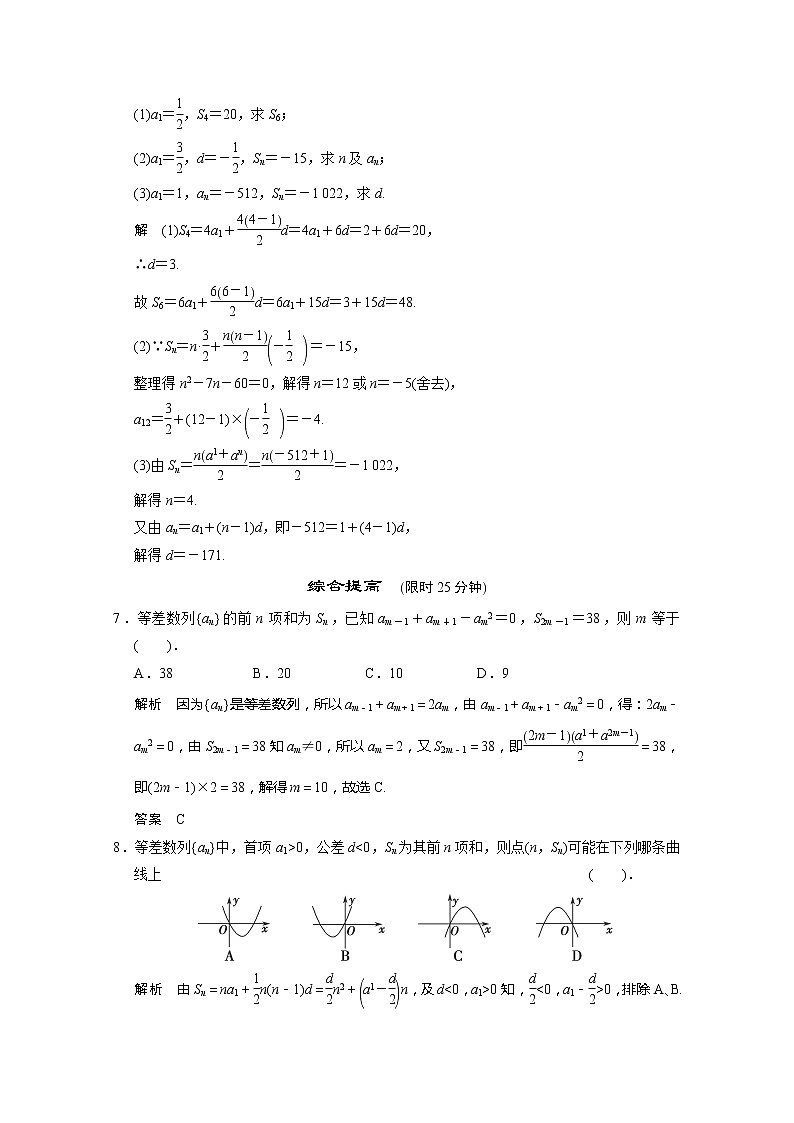 (1)a₁＝1/2，S₄＝20，求 S₆；
(2)a₁＝3/2，d＝－1/2，Sₙ＝－15，求 n 及 aₙ；
(3)a₁＝1，aₙ＝－512，Sₙ＝－1 022，求 d.
解　(1)S₄＝4a₁＋4(4－1)/2 d＝4a₁＋6d＝2＋6d＝20，
∴d＝3.
故 S₆＝6a₁＋6(6－1)/2 d＝6a₁＋15d＝3＋15d＝48.
(2)∵Sₙ＝n·3/2＋n(n－1)/2(－1/2)＝－15，
整理得 n²－7n－60＝0，解得 n＝12 或 n＝－5(舍去)，
a₁₂＝3/2＋(12－1)×(－1/2)＝－4.
(3)由 Sₙ＝n(a¹＋aⁿ)/2＝n(－512＋1)/2＝－1 022，
解得 n＝4.
又由 aₙ＝a₁＋(n－1)d，即－512＝1＋(4－1)d，
解得 d＝－171.
综合提高　(限时 25 分钟)
7．等差数列{aₙ}的前 n 项和为 Sₙ，已知 aₘ₋₁＋aₘ₊₁－aₘ²＝0，S₂ₘ₋₁＝38，则 m 等于
(　　)．
A．38　B．20　C．10　D．9
解析　因为{aₙ}是等差数列，所以 aₘ₋₁＋aₘ₊₁＝2aₘ，由 aₘ₋₁＋aₘ₊₁－aₘ²＝0，得：2aₘ－
aₘ²＝0，由 S₂ₘ₋₁＝38 知 aₘ≠0，所以 aₘ＝2，又 S₂ₘ₋₁＝38，即(2m－1)(a¹＋a²ᵐ⁻¹)/2＝38，
即(2m－1)×2＝38，解得 m＝10，故选 C.
答案　C
8．等差数列{aₙ}中，首项 a₁>0，公差 d<0，Sₙ为其前 n 项和，则点(n，Sₙ)可能在下列哪条曲
线上　(　　)．
y y y y
O x O x O x O x
A B C D
解析　由 Sₙ＝na₁＋1/2 n(n－1)d＝d/2 n²＋(a¹－d/2)n，及 d<0，a₁>0 知，d/2<0，a₁－d/2>0，排除 A、B.